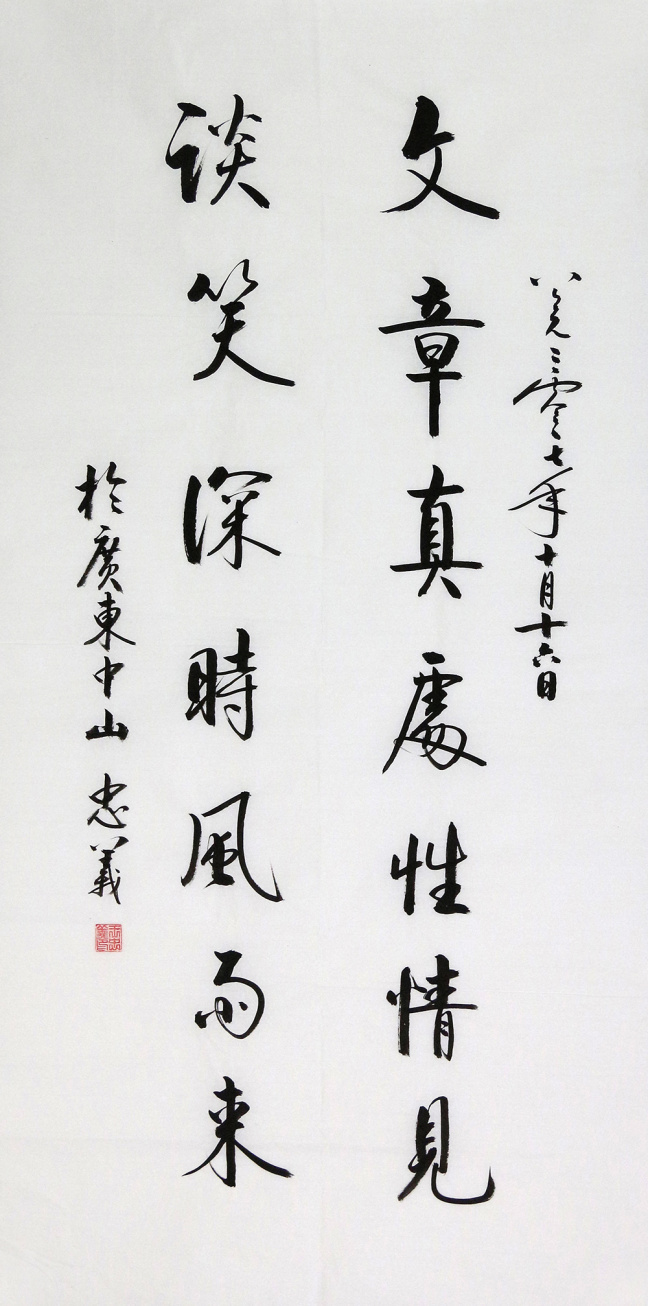 公元二零零七年十月十六日
文章真處性情見
談笑深時風雨来
於廣東中山 忠義